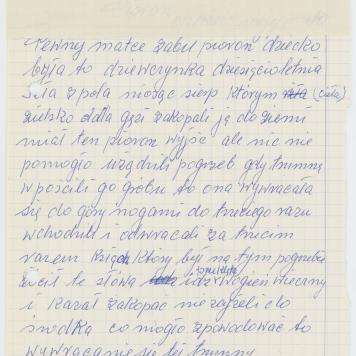 Pewnej matce zabił piorun dziecko
była to dziewczynka dziesięcioletnia
szła z pola niosąc sierp którym (cięła)
zielsko dla gęsi zakopali ją do ziemi
miał ten piorun wyjść ale nic nie
pomogło urządzili pogrzeb gdy trumnę
wpościli do grobu to ona wywracała
się do góry nogami do trzeciego razu
wchodzili i odwracali za trzecim
razem ksiądz który był na tym pogrzebie
rzucił te słowa idź w ogień wieczny
i kazał zakopać nie zajrzeli do
środka co mogło spowodować to
wywracanie się tej trumny